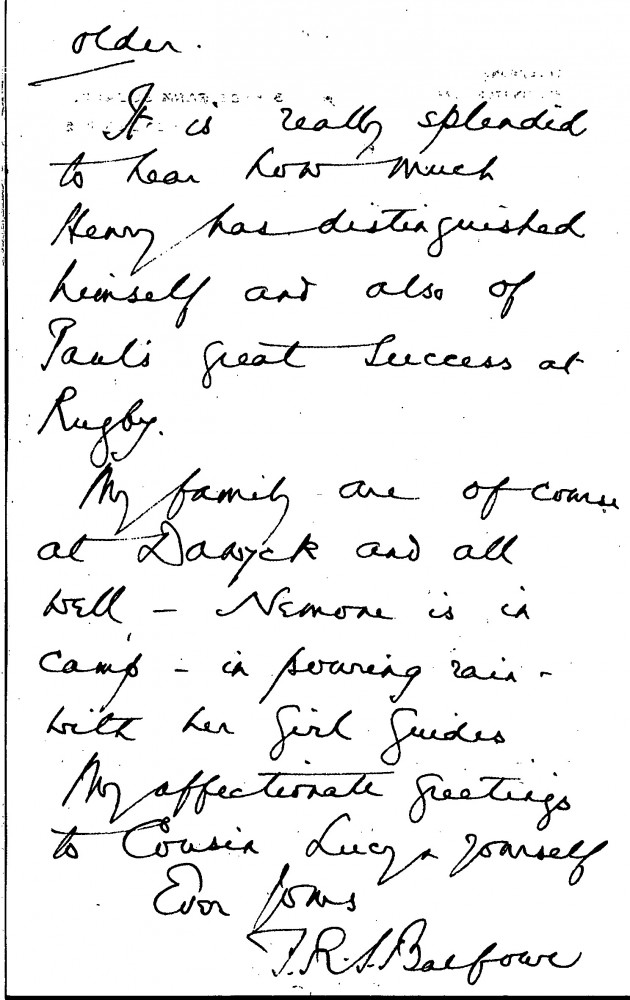 older.
It is really splendid
to hear how much
Henry has distinguished
himself and also of
Paul's great success at
Rugby.
My family are of course
at Dawyck and all
well – Nemone is in
camp – in pouring rain –
with her Girl Guides
My affectionate greetings
to Cousin Lucy & yourself
Ever Yours
F.R.S. Balfour